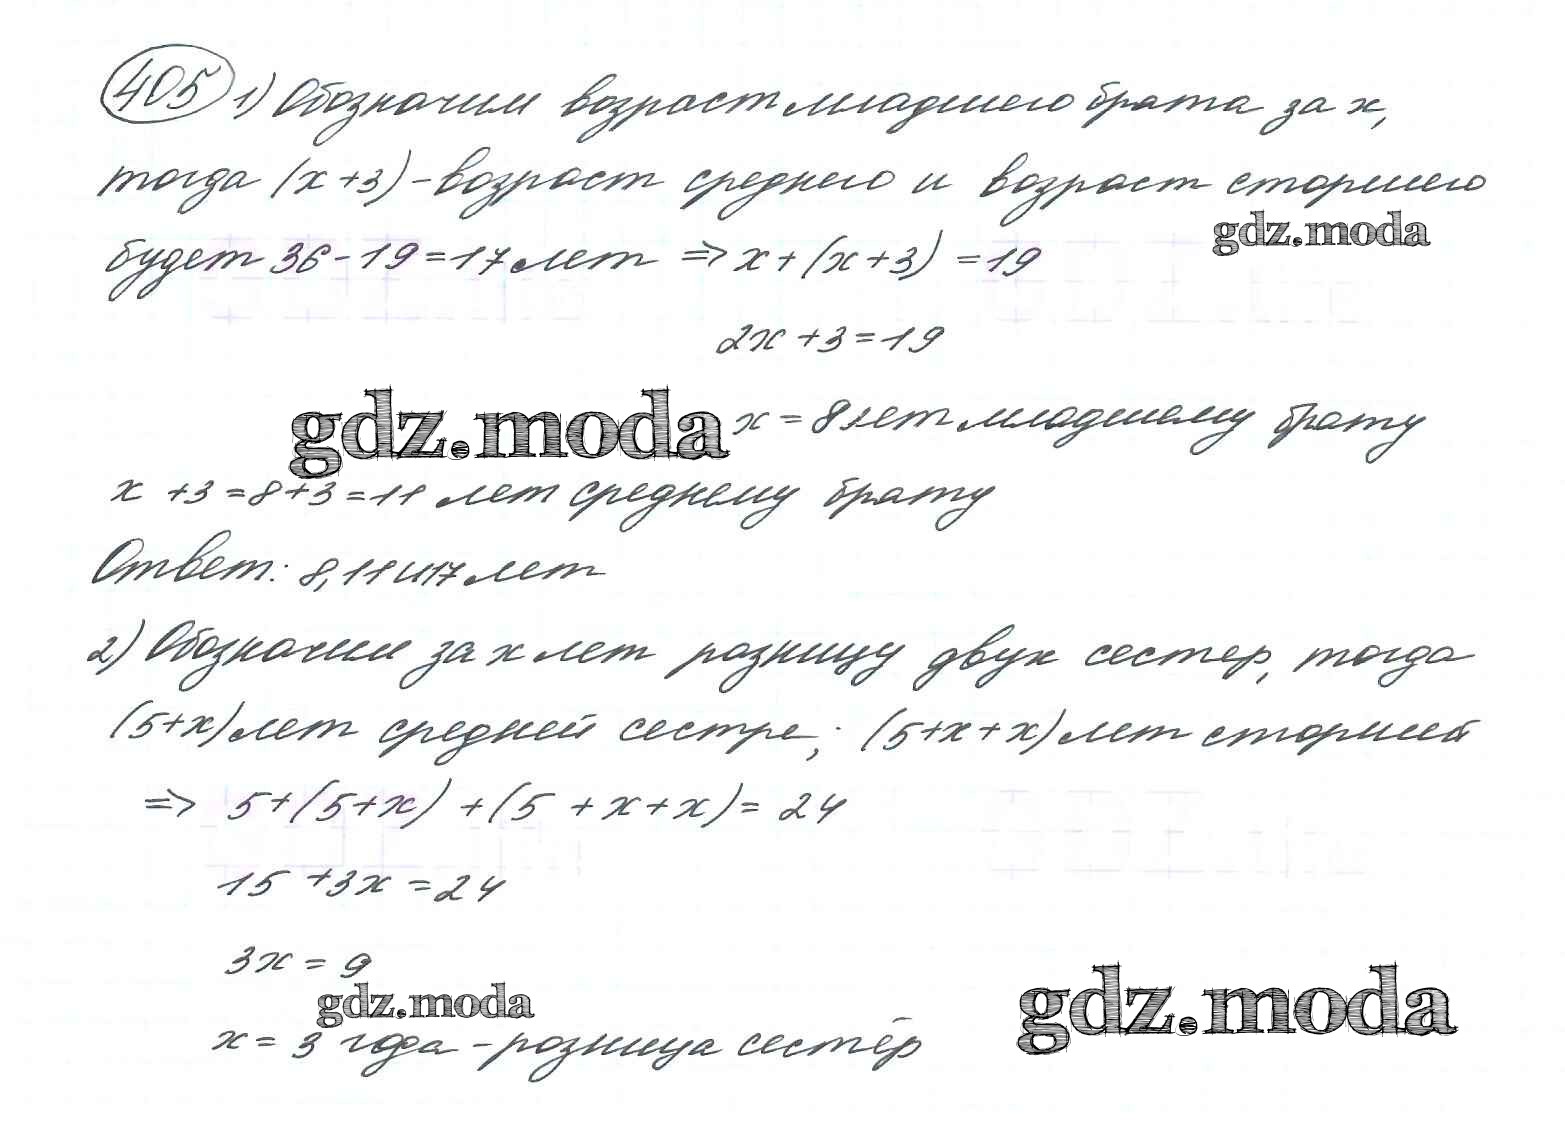 405 1) Обозначим возраст младшего брата за x,
тогда (x+3) - возраст среднего и возраст старшего
gdz.moda
будет 36-19=17 лет => x+(x+3) =19
2x+3=19
gdz.moda
x = 8 лет младшему брату
x +3 =8+3 =11 лет среднему брату
Ответ: 8, 11 и 17 лет
2) Обозначим за x лет разницу двух сестер, тогда
(5+x) лет средней сестре; (5+x+x) лет старшей
=> 5+(5+x) +(5 +x+x)= 24
15 +3x =24
3x = 9
gdz.moda
gdz.moda
x= 3 года - разница сестёр